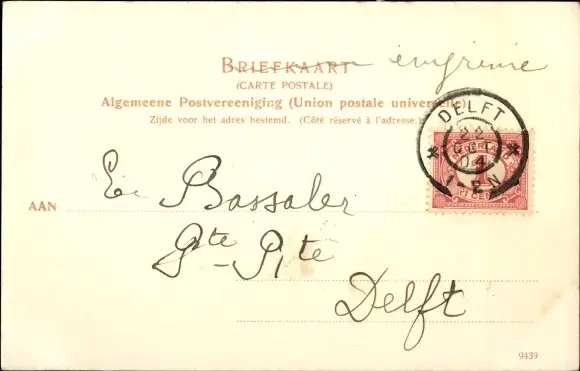 BRIEFKAART imprimé
(CARTE POSTALE)
Algemeene Postvereeniging (Union postale universelle)
Zijde voor het adres bestemd. (Côté réservé à l'adresse.)
DELFT
22
04
1-2N
NEDERLAND
1
AAN E. Bassaler
Delft
9439